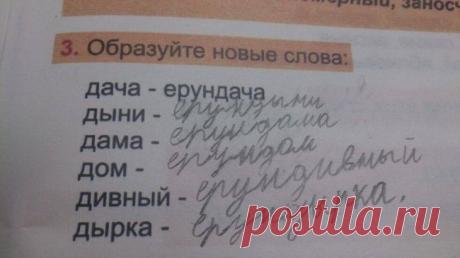 мерный, занос
3. Образуйте новые слова:
дача - ерундача
дыни - ерундыни
дама - ерундама
дом - ерундом
дивный - ерундивный
дырка - 
postila.ru